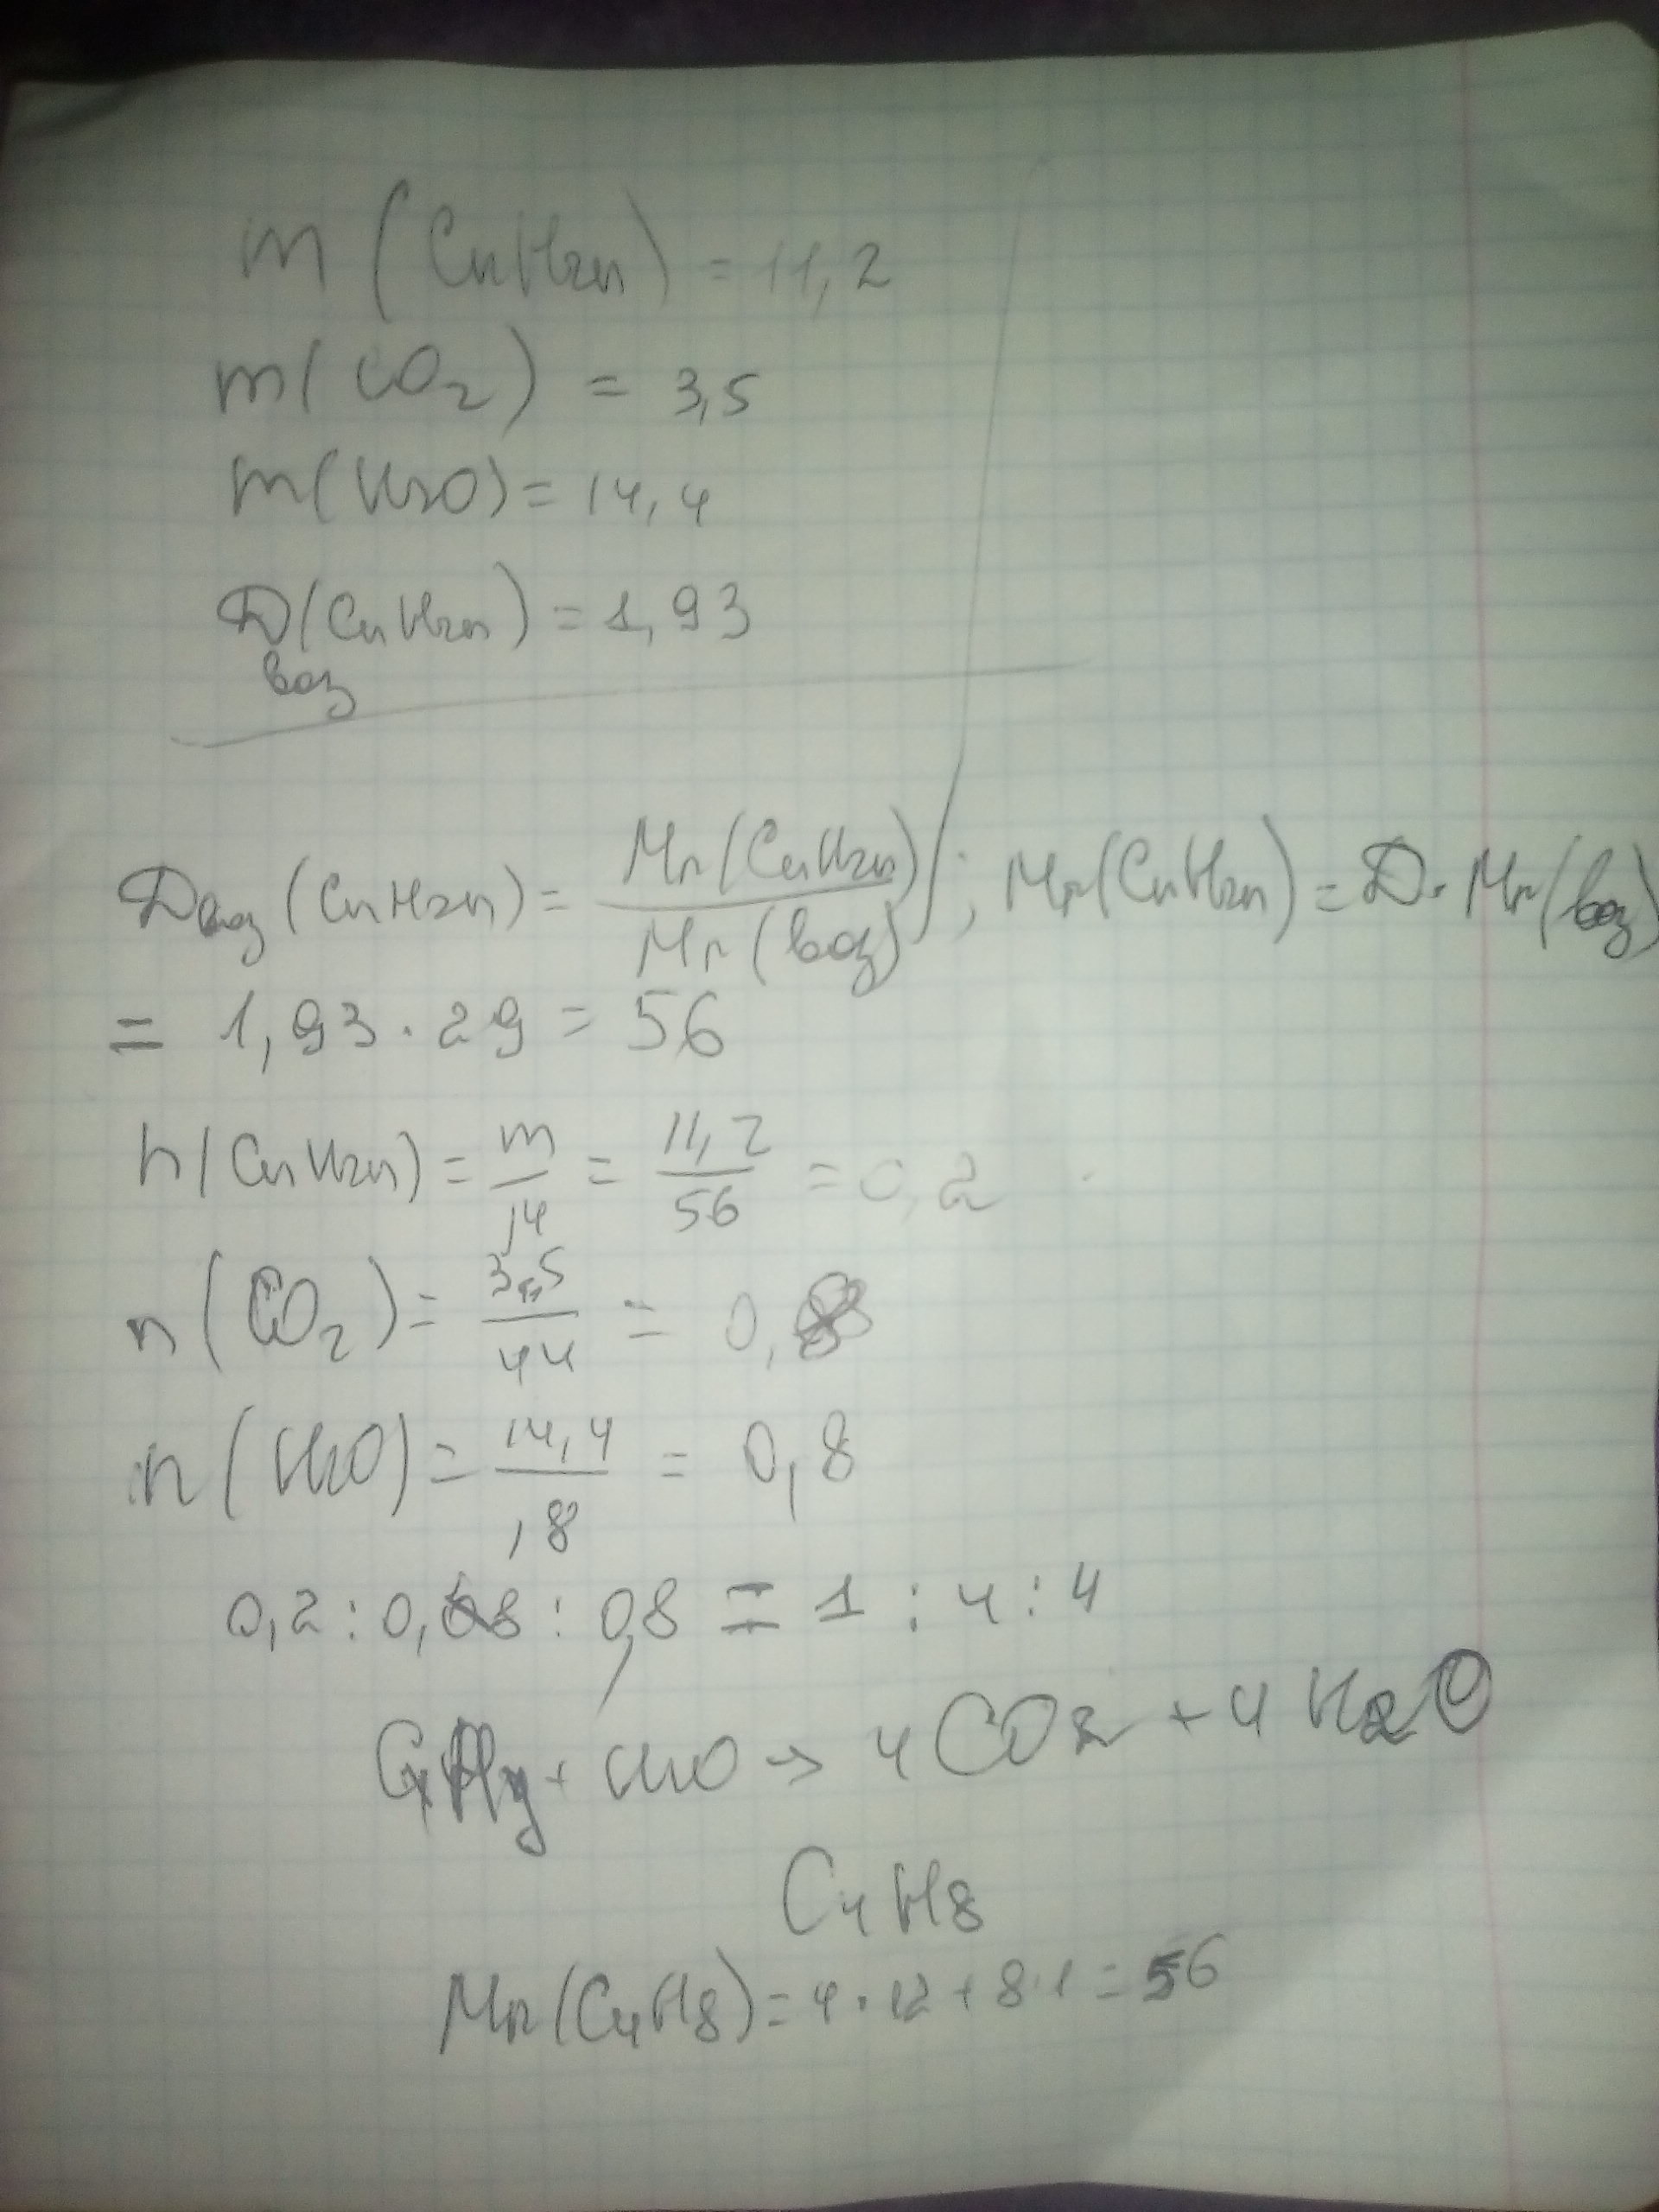 m(CnH2n) = 11,2
m(CO2) = 3,5
m(H2O) = 14,4
D(CnH2n) = 1,93
воз
Dвоз(CnH2n) = Mr(CnH2n)/Mr(воз); Mr(CnH2n) = D · Mr(воз)
= 1,93 · 29 = 56
n(CnH2n) = m/M = 11,2/56 = 0,2
n(CO2) = 3,5/44 = 0,8
n(H2O) = 14,4/18 = 0,8
0,2 : 0,8 : 0,8 = 1 : 4 : 4
CxHy + H2O → 4CO2 + 4H2O
C4H8
Mr(C4H8) = 4 · 12 + 8 · 1 = 56